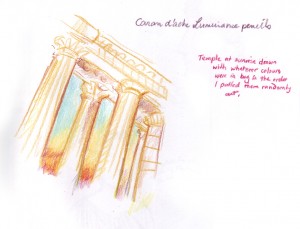 Caran d'ache Luminance pencils
Temple at sunrise drawn
with whatever colours
were in bag & the order
I pulled them randomly
out.